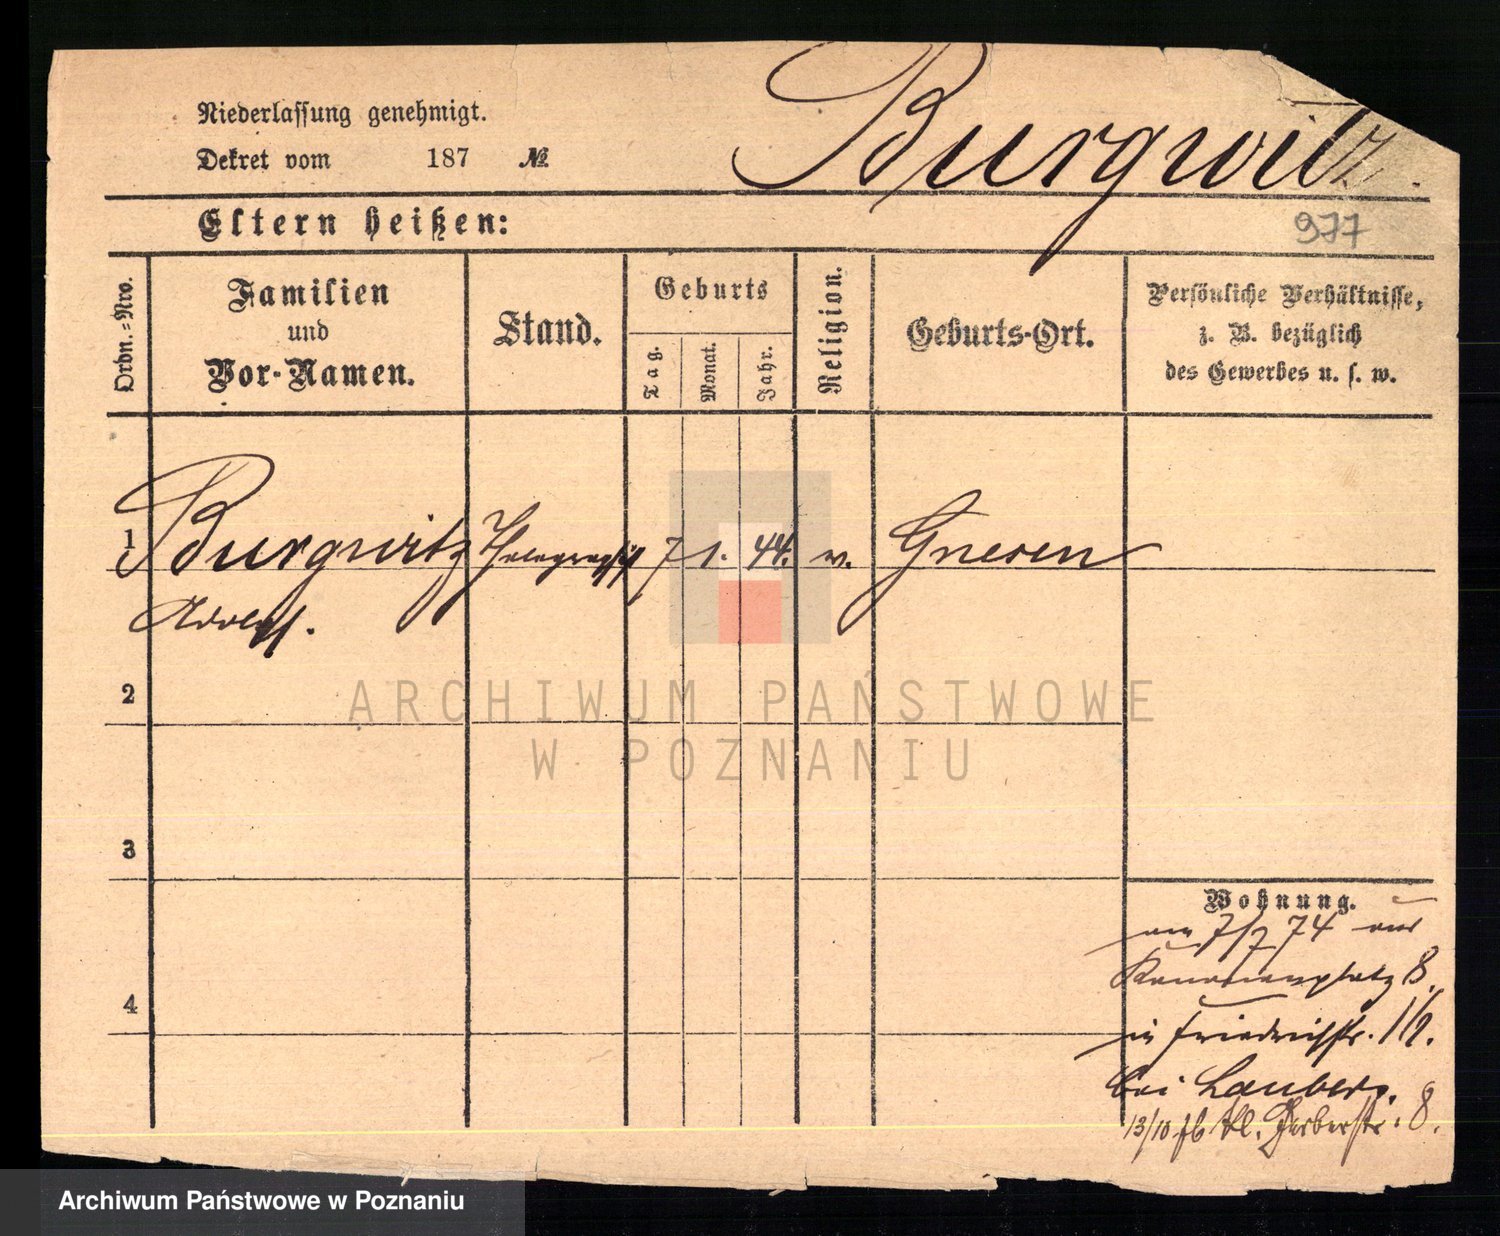 Niederlassung genehmigt.
Dekret vom 187 №
Burgwitz.
Eltern heißen:
977
Ordn.=Nro.
Familien
und
Vor-Namen.
Stand.
Geburts
Tag.
Monat.
Jahr.
Religion.
Geburts-Ort.
Persönliche Verhältnisse,
z. B. bezüglich
des Gewerbes u. s. w.
1 Burgwitz Telegraphist 7 1. 44. Gnesen
Adolf.
2
ARCHIWUM PAŃSTWOWE
W POZNANIU
3
Wohnung.
am 7/7 74 aus
Kanonenplatz 8.
4
in Friedrichstr.
bei Lauber
13/10 76 kl. Gerberstr. 8.
Archiwum Państwowe w Poznaniu